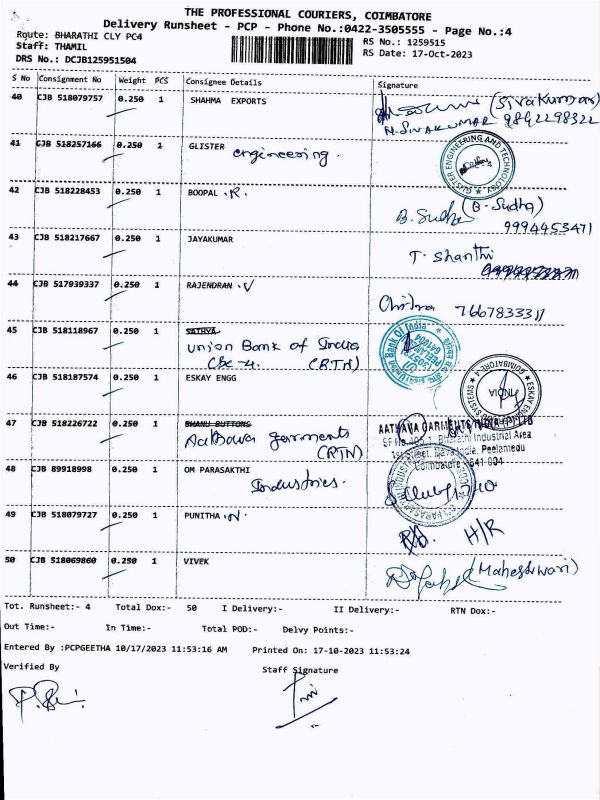 THE PROFESSIONAL COURIERS, COIMBATORE
Delivery Runsheet - PCP - Phone No.:0422-3505555 - Page No.:4
Route: BHARATHI CLY PC4
Staff: THAMIL
DRS No.: DCJB125951504
RS No.: 1259515
RS Date: 17-Oct-2023
S No Consignment No Weight PCS Consignee Details Signature
40 CJB 518079757 0.250 1 SHAHMA EXPORTS (Sivakumar)
N.SIVAKUMAR 9842298322
41 CJB 518257166 0.250 1 GLISTER engineering.
42 CJB 518228453 0.250 1 BOOPAL .R. B. Sudha (B. Sudha)
9994453471
43 CJB 518217667 0.250 1 JAYAKUMAR T. Shanthi
44 CJB 517939337 0.250 1 RAJENDRAN .V Chitra 7667833311
45 CJB 518118967 0.250 1 SATHYA
Union Bank of India
CBE-4. (RTN)
Union Bank Of India
46 CJB 518187574 0.250 1 ESKAY ENGG
47 CJB 518226722 0.250 1 BHANU BUTTONS
Aathava garments
(RTN)
AATHAVA GARMENTS INDIA P LTD
Bharathi Industrial Area
1st Street, Nava India, Peelamedu
Coimbatore - 641 004
48 CJB 89918998 0.250 1 OM PARASAKTHI
Industries.
49 CJB 518079727 0.250 1 PUNITHA .N. H/R
50 CJB 518069860 0.250 1 VIVEK (Maheshwari)
Tot. Runsheet:- 4 Total Dox:- 50 I Delivery:- II Delivery:- RTN Dox:-
Out Time:- In Time:- Total POD:- Delvy Points:-
Entered By :PCPGEETHA 10/17/2023 11:53:16 AM Printed On: 17-10-2023 11:53:24
Verified By Staff Signature